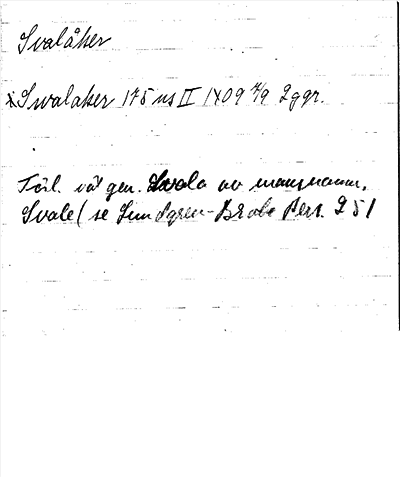 Svalåker
Swalaker 175 ns II 1409 7/9 2ggr.
Förl. väl gen. Svala av mansnamn.
Svale (se Lundgren-Brate Pers. 251